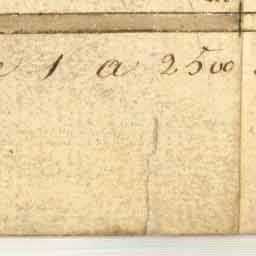 e 1 a 2500